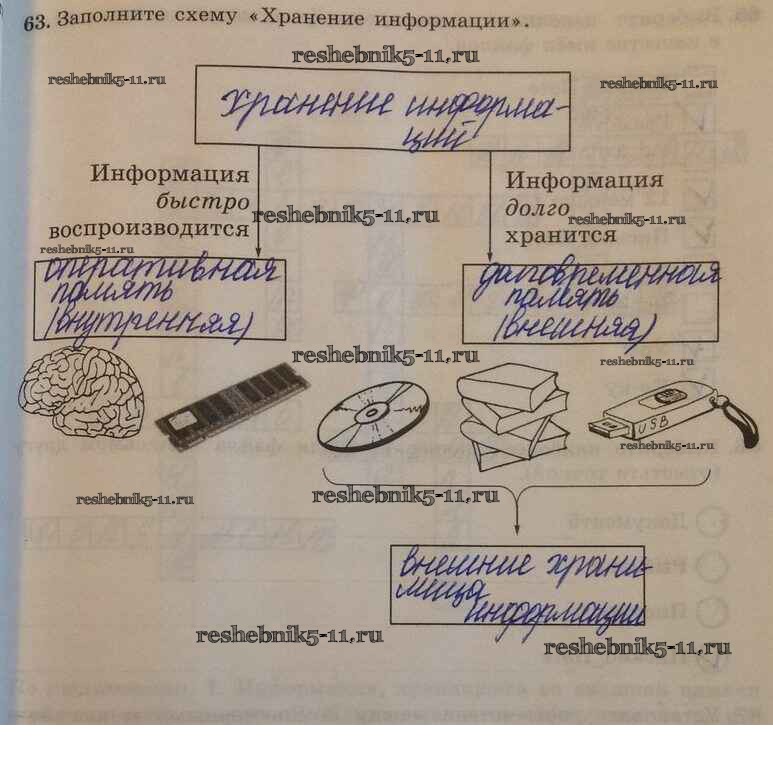 63. Заполните схему «Хранение информации».
reshebnik5-11.ru
reshebnik5-11.ru
reshebnik5-11.ru
хранение информа-
ций
Информация
быстро
воспроизводится
Информация
долго
хранится
reshebnik5-11.ru
reshebnik5-11.ru
оперативная
память
(внутренняя)
долговременная
память
(внешняя)
reshebnik5-11.ru
reshebnik5-11.ru
USB
reshebnik5-11.ru
reshebnik5-11.ru
reshebnik5-11.ru
внешние храни-
лища
информации
reshebnik5-11.ru
reshebnik5-11.ru